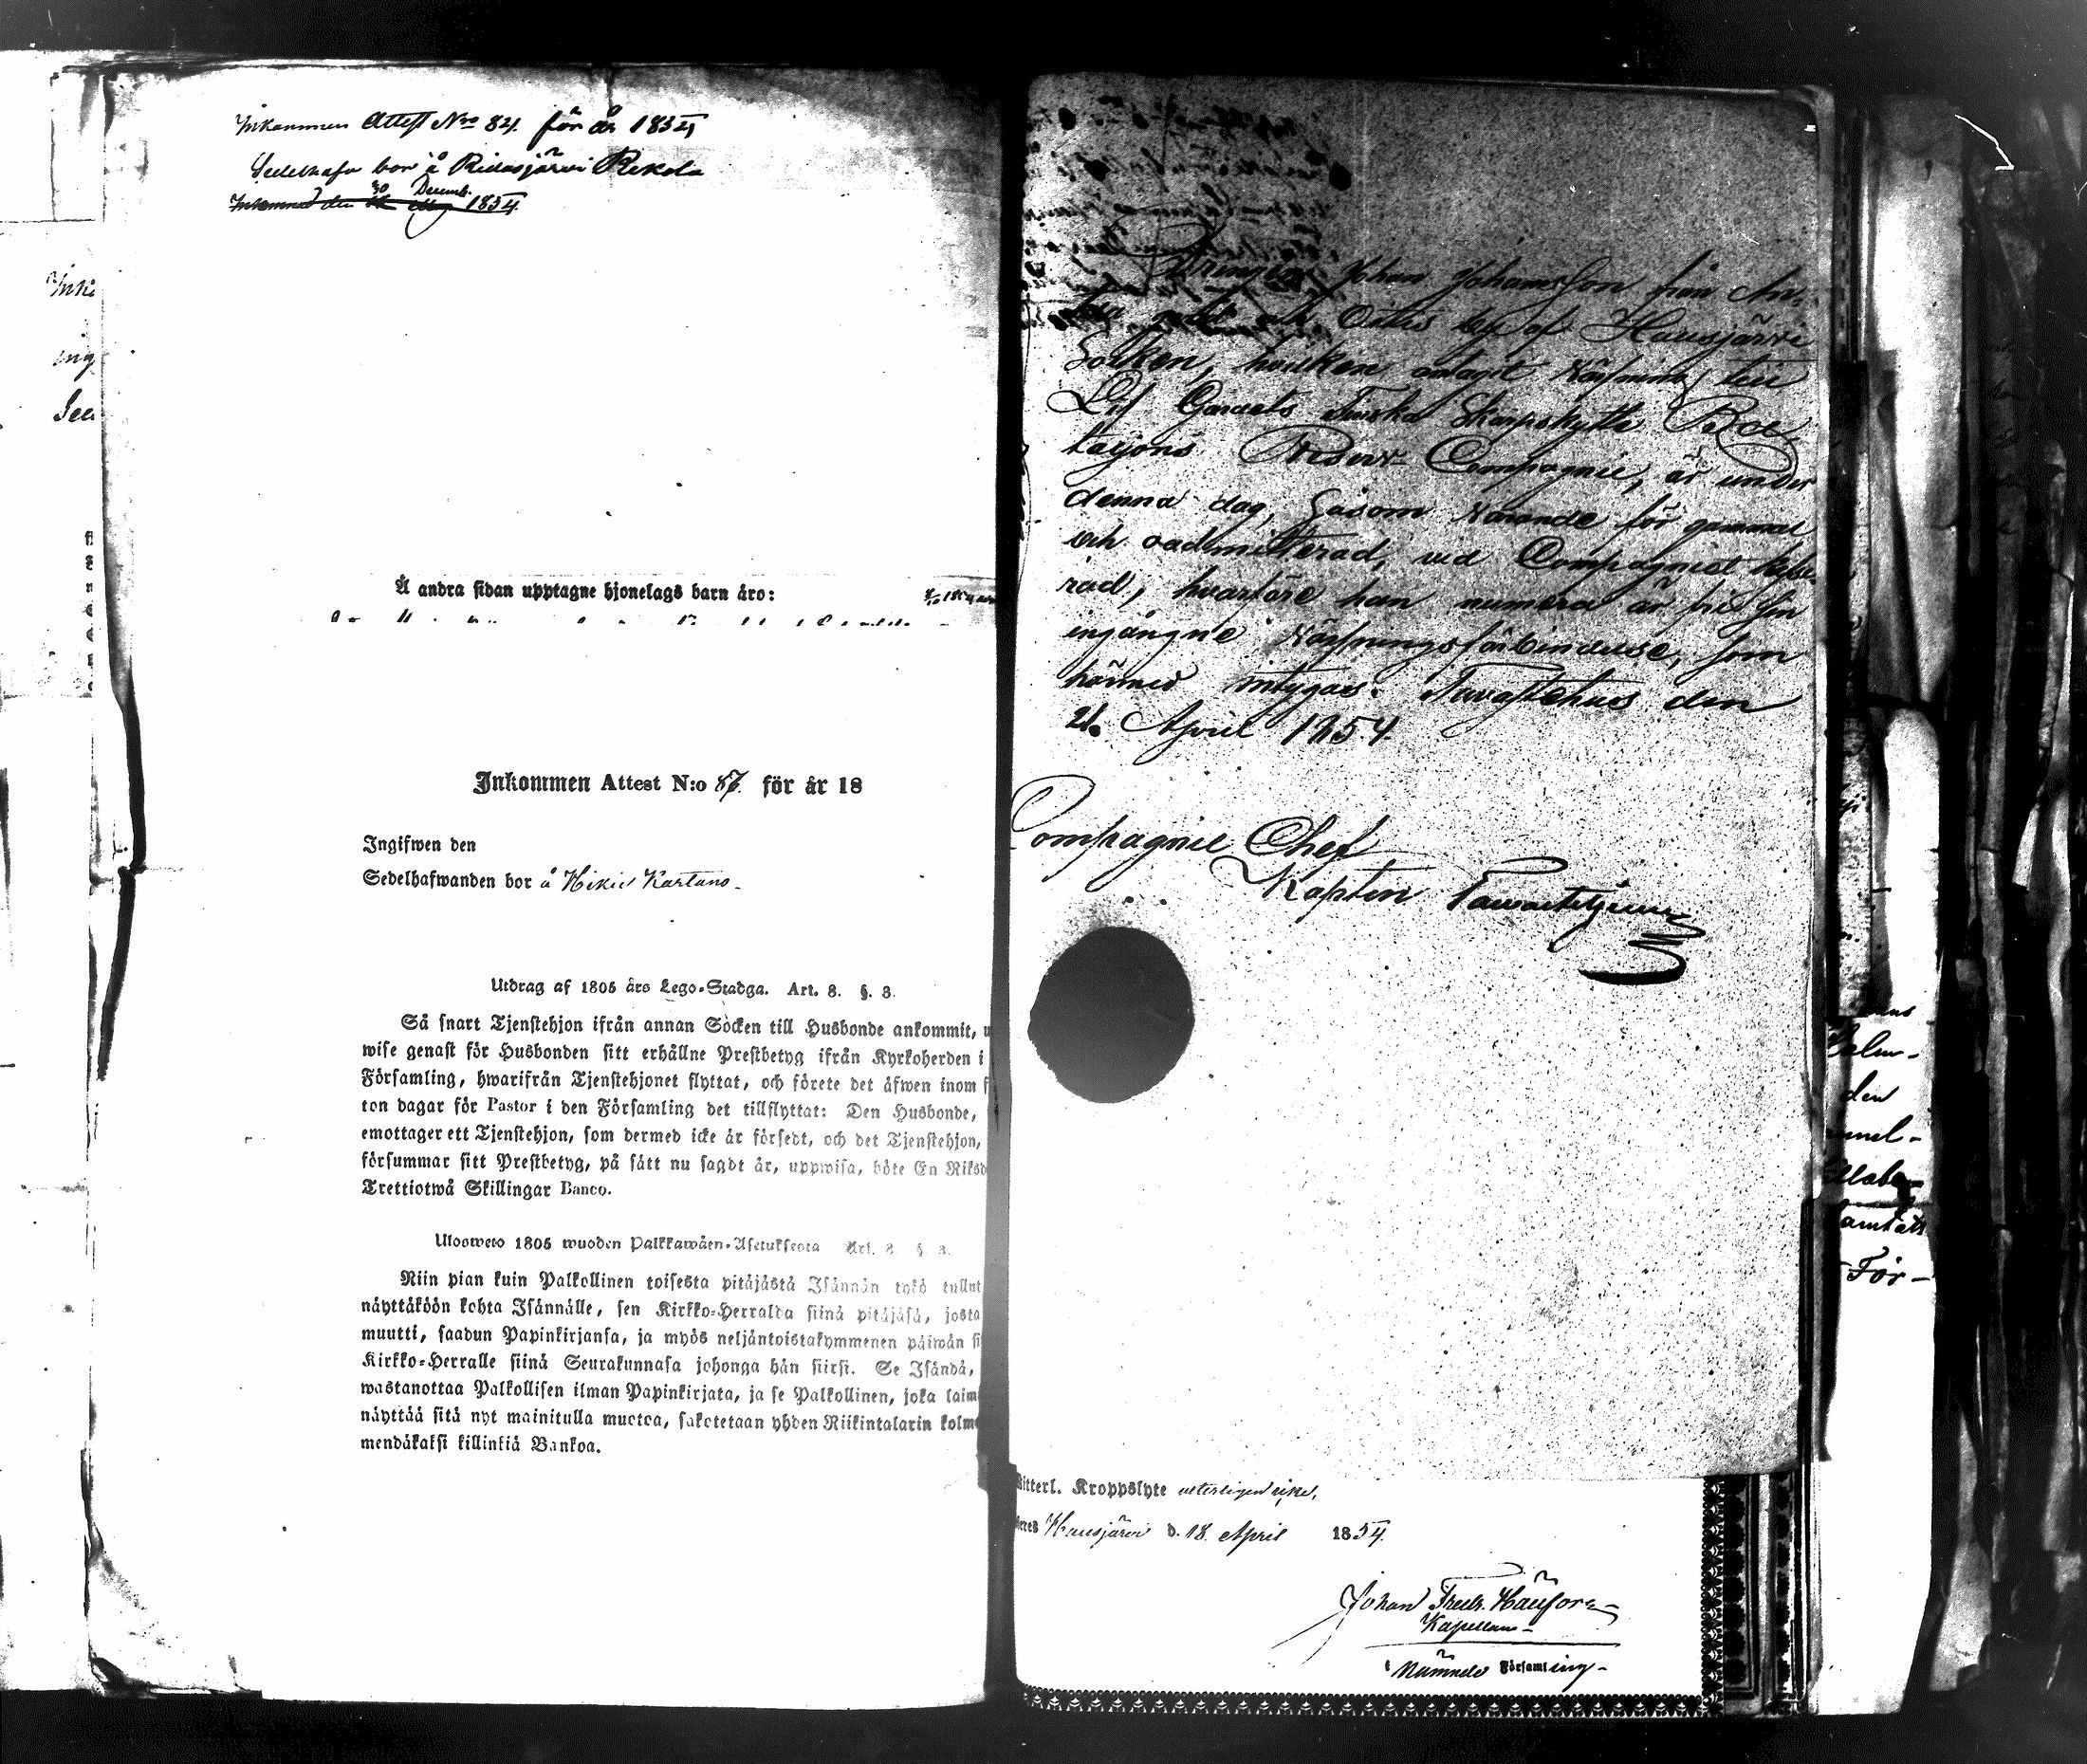 Inkommen Attest Nro 84. för år 1854
Sedelhafv bor å Ridasjärvi Rekola
Inkommen den 30 Decemb. 1854.
Å andra sidan upptagne hjonelags barn äro:
Inkommen Attest N:o 87. för år 18
Ingifwen den
Sedelhafwanden bor å Hikiä Kartano
Utdrag af 1805 års Lego-Stadga. Art. 8. §. 3.
Så snart Tjenstehjon ifrån annan Socken till Husbonde ankommit, u
wise genast för Husbonden sitt erhållne Prestbetyg ifrån Kyrkoherden i
Församling, hwarifrån Tjenstehjonet flyttat, och förete det äfwen inom f
ton dagar för Pastor i den Församling det tillflyttat: Den Husbonde,
emottager ett Tjenstehjon, som dermed icke är försedt, och det Tjenstehjon,
försummar sitt Prestbetyg, på sätt nu sagdt är, uppwisa, böte En Riksd
Trettiotwå Skillingar Banco.
Uloswето 1805 wuoden Palkkawäen-Asetuksesta Art. 8. §. 3.
Niin pian kuin Palkollinen toisesta pitäjästä Isännän tykö tullut
näyttäköön kohta Isännälle, sen Kirkko-Herralda siinä pitäjäsä, josta
muutti, saadun Papinkirjansa, ja myös neljäntoistakymmenen päiwän si
Kirkko-Herralle siinä Seurakunnasa johonga hän siirsi. Se Isändä,
wastanottaa Palkollisen ilman Papinkirjata, ja se Palkollinen, joka laim
näyttää sitä nyt mainitulla muotoa, sakotetaan yhden Riikintalarin kolm
mendäkaksi killinkiä Bankoa.
Drengen Johan Johansson från An-
tila och Oitis by af Hausjärvi
Socken, hvilken antagit Värfning till
Lif Gardets Finska Skarpskytte Bat-
taljons Reserv Compagnie, är under
denna dag, såsom varande för gammal
och oadmitterad, vid Compagniet
rad, hvarföre han numera är fri sin
ingångne Värfningsförbindelse, som
härmed intygas. Tavastehus den
21. April 1854.
Compagnie Chef
Kapten
itterl. Kroppslyte veterligen icke.
Hausjärvi d. 18. April 1854.
Johan Fredr.
Kapellan
i Nämnde Församling